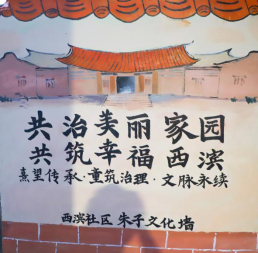 共治美丽家园
共筑幸福西滨
熹望传承·重筑治理·文脉永续
西滨社区 朱子文化墙